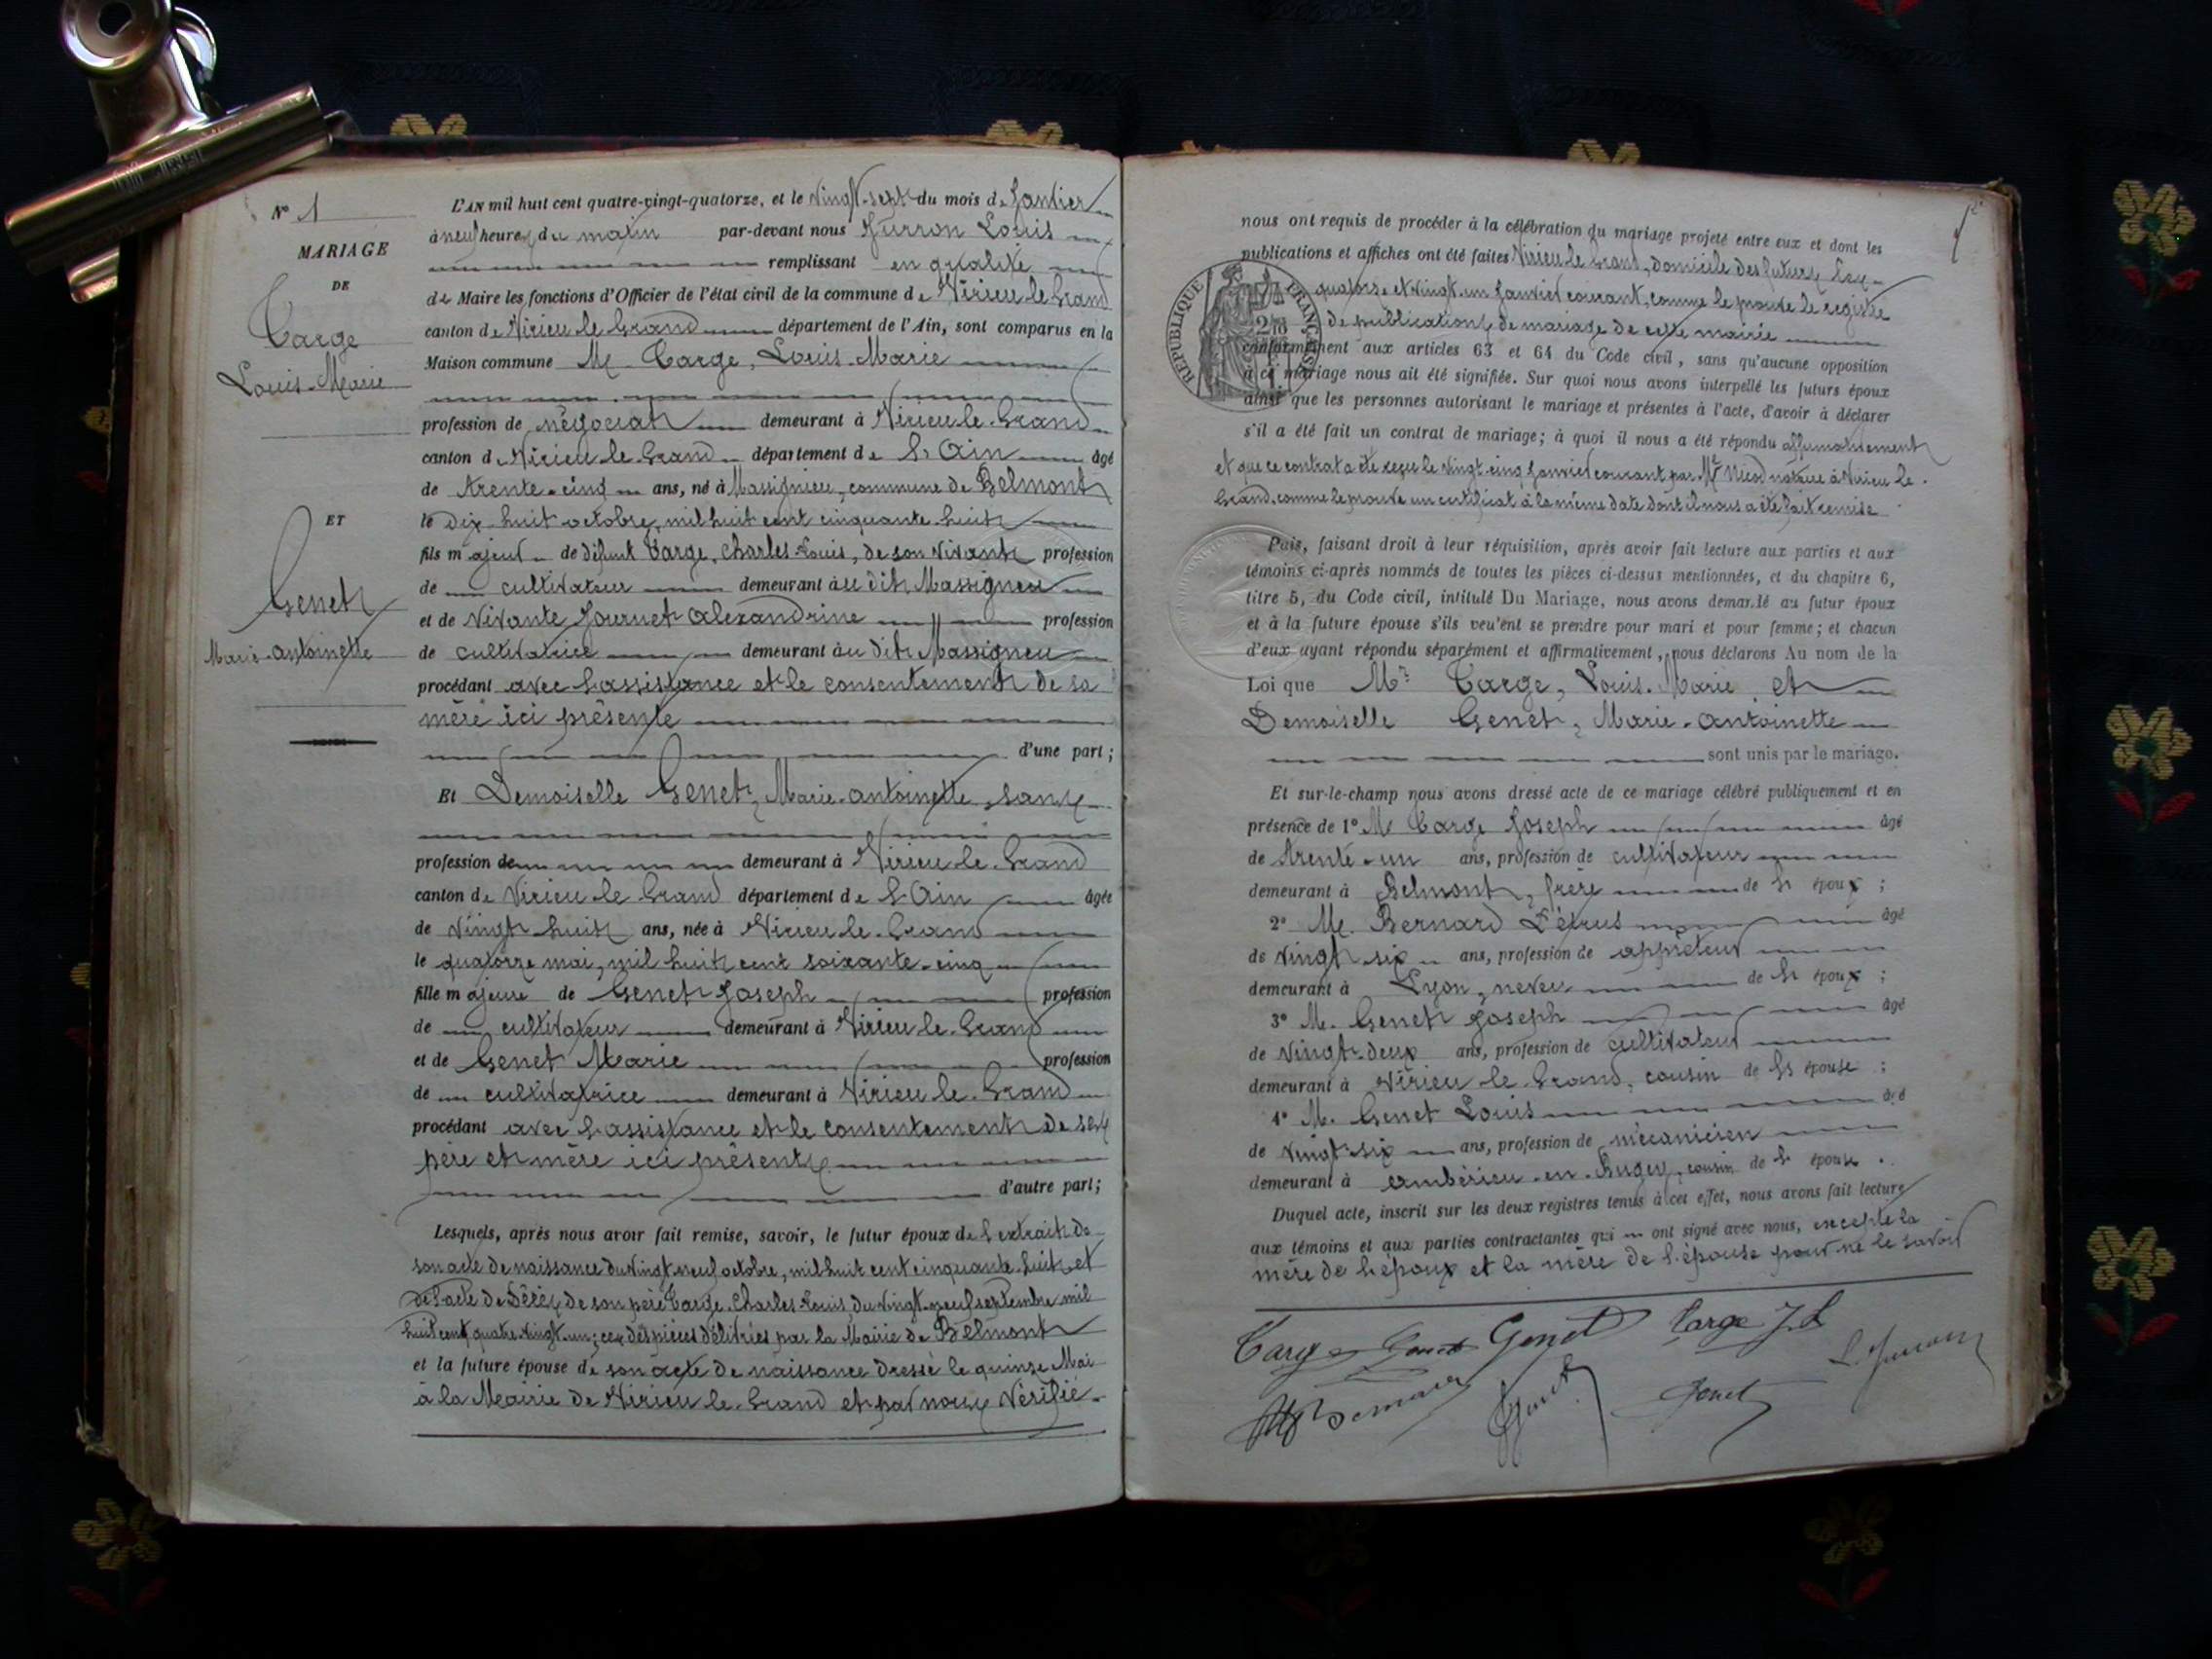 N° 1
MARIAGE
DE
Targe
Louis-Marie
ET
Genet
Marie-antoinette
L'AN mil huit cent quatre-vingt-quatorze, et le vingt-sept du mois de Janvier
à neuf heures du matin par-devant nous Louis
remplissant en qualité
de Maire les fonctions d'Officier de l'état civil de la commune de Virieu-le-Grand
canton de Virieu-le-Grand département de l'Ain, sont comparus en la
Maison commune Mr Targe, Louis-Marie
profession de négociant demeurant à Virieu-le-Grand
canton de Virieu-le-Grand département de l'Ain âgé
de trente-cinq ans, né à Massignieu, commune de Belmont
le dix-huit octobre, mil huit cent cinquante-huit
fils majeur de défunt Targe, Charles-Louis, de son vivant profession
de cultivateur demeurant au dit Massigneu
et de vivante Journet alexandrine profession
de cultivatrice demeurant au dit Massigneu
procédant avec l'assistance et le consentement de sa
mère ici présente
d'une part ;
Et Demoiselle Genet, Marie-antoinette, sans
profession de demeurant à Virieu-le-Grand
canton de Virieu-le-Grand département de l'Ain âgée
de vingt-huit ans, née à Virieu-le-Grand
le quatorze mai, mil huit cent soixante-cinq
fille majeure de Genet Joseph profession
de cultivateur demeurant à Virieu-le-Grand
et de Genet Marie profession
de cultivatrice demeurant à Virieu-le-Grand
procédant avec l'assistance et le consentement de ses
père et mère ici présents
d'autre part;
Lesquels, après nous avoir fait remise, savoir, le futur époux de l'extrait de
son acte de naissance du vingt-neuf octobre, mil huit cent cinquante-huit et
de l'acte de décès de son père Targe, Charles-Louis, du vingt-neuf septembre mil
huit cent quatre-vingt-un; ces pièces délivrées par la Mairie de Belmont
et la future épouse de son acte de naissance dressé le quinze Mai
à la Mairie de Virieu-le-Grand et par nous vérifié
nous ont requis de procéder à la célébration du mariage projeté entre eux et dont les
publications et affiches ont été faites Virieu-le-Grand, domicile des futurs les
quatorze et vingt-un Janvier courant, comme le prouve le registre
de publications de mariage de cette mairie
RÉPUBLIQUE FRANÇAISE
conformément aux articles 63 et 64 du Code civil, sans qu'aucune opposition
à ce mariage nous ait été signifiée. Sur quoi nous avons interpellé les futurs époux
ainsi que les personnes autorisant le mariage et présentes à l'acte, d'avoir à déclarer
s'il a été fait un contrat de mariage; à quoi il nous a été répondu affirmativement
et que ce contrat a été reçu le vingt-cinq Janvier courant par Me Nicod notaire à Virieu-le-
Grand, comme le prouve un certificat à la même date dont il nous a été fait remise
Puis, faisant droit à leur réquisition, après avoir fait lecture aux parties et aux
témoins ci-après nommés de toutes les pièces ci-dessus mentionnées, et du chapitre 6,
titre 5, du Code civil, intitulé Du Mariage, nous avons demandé au futur époux
et à la future épouse s'ils veulent se prendre pour mari et pour femme; et chacun
d'eux ayant répondu séparément et affirmativement, nous déclarons Au nom de la
Loi que Mr Targe, Louis-Marie et
Demoiselle Genet, Marie-antoinette
sont unis par le mariage.
Et sur-le-champ nous avons dressé acte de ce mariage célébré publiquement et en
présence de 1° Mr Targe Joseph âgé
de trente-un ans, profession de cultivateur
demeurant à Belmont, frère de l'époux ;
2° Mr. Bernard Pétrus âgé
de vingt-six ans, profession de apprêteur
demeurant à Lyon, neveu de l'époux ;
3° M. Genet Joseph âgé
de vingt-deux ans, profession de cultivateur
demeurant à Virieu-le-Grand, cousin de l'épouse ;
4° M. Genet Louis âgé
de vingt-six ans, profession de mécanicien
demeurant à ambérieu-en-Bugey, cousin de l'épouse.
Duquel acte, inscrit sur les deux registres tenus à cet effet, nous avons fait lecture
aux témoins et aux parties contractantes qui ont signé avec nous, excepté la
mère de l'époux et la mère de l'épouse pour ne le savoir
Targe Genet Genet Targe J L
Genet